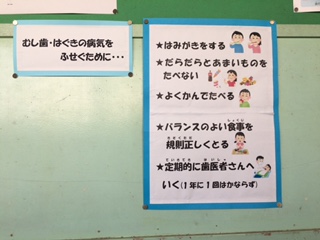 むし歯・はぐきの病気を
ふせぐために・・・
★はみがきをする
★だらだらとあまいものを
たべない
★よくかんでたべる
★バランスのよい食事を
規則正しくとる
★定期的に歯医者さんへ
いく(1年に1回はかならず)